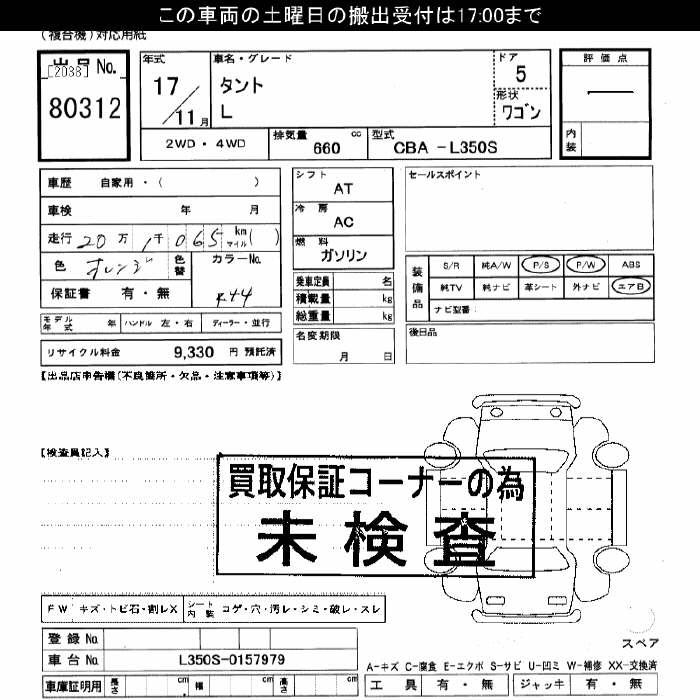 この車両の土曜日の搬出受付は17:00まで
(複合機)対応用紙
出品 No.
[2038]
80312
年式
17
11月
車名・グレード
タント
L
ドア
5
形状
ワゴン
評価点
内装
2WD・4WD
排気量 cc
660
型式
CBA -L350S
車歴 自家用・( )
車検 年 月
走行 20万 1千 065 km マイル( )
色 オレンジ 色替
カラーNo.
R44
保証書 有・無
シフト
AT
冷房
AC
燃料
ガソリン
乗車定員 名
積載量 kg
総重量 kg
名変期限
月 日
セールスポイント
装備品
S/R 純A/W P/S P/W ABS
純TV 純ナビ 革シート 外ナビ エアB
ナビ型番
後日品
モデル年式 年 ハンドル 左・右 ディーラー・並行
リサイクル料金 9,330 円 預託済
【出品店申告欄(不良箇所・欠品・注意事項等)】
【検査員記入】
買取保証コーナーの為
未検査
FW キズ・トビ石・割レX シート内装 コゲ・穴・汚レ・シミ・破レ・スレ
登録 No.
車台 No. L350S-0157979
車庫証明用 長さ cm 幅 cm 高さ cm
スペア
A-キズ C-腐食 E-エクボ S-サビ U-凹ミ W-補修 XX-交換済
工具 有・無 ジャッキ 有・無